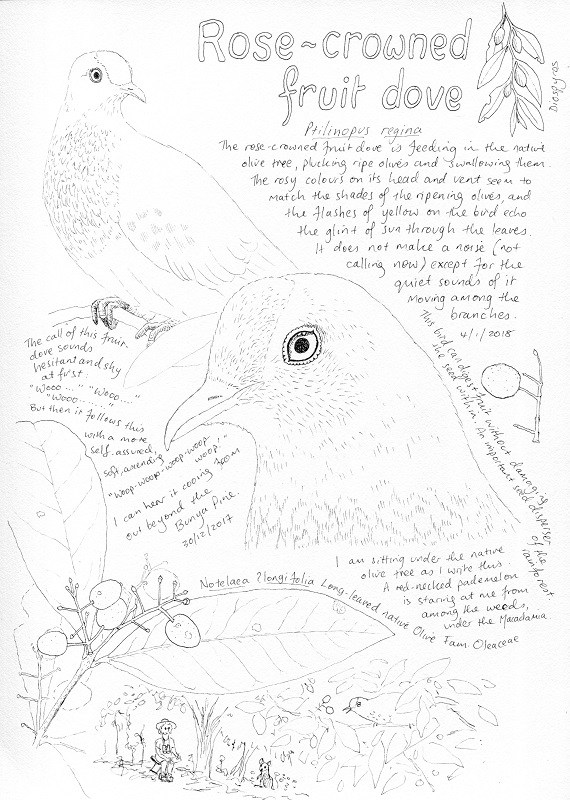 Rose-crowned
fruit dove
Diospyros
Ptilinopus regina
The rose-crowned fruit dove is feeding in the native
olive tree, plucking ripe olives and swallowing them.
The rosy colours on its head and vent seem to
match the shades of the ripening olives, and
the flashes of yellow on the bird echo
the glint of sun through the leaves.
It does not make a noise (not
calling now) except for the
quiet sounds of it
moving among the
branches.
4/1/2018
The call of this fruit
dove sounds
hesitant and shy
at first.
"Wooo....." "Wooo....."
"Wooo....."
But then it follows this
with a more
self-assured,
soft, ascending
"Woop-woop-woop-woop
woop!"
I can hear it cooing from
out beyond the
Bunya Pine.
30/12/2017
This bird can digest fruit without damaging
the seed within. An important seed disperser
of the
rainforest.
I am sitting under the native
olive tree as I write this.
A red-necked pademelon
is staring at me from
among the weeds,
under the Macadamia.
Notelaea ?longifolia Long-leaved native Olive Fam. Oleaceae